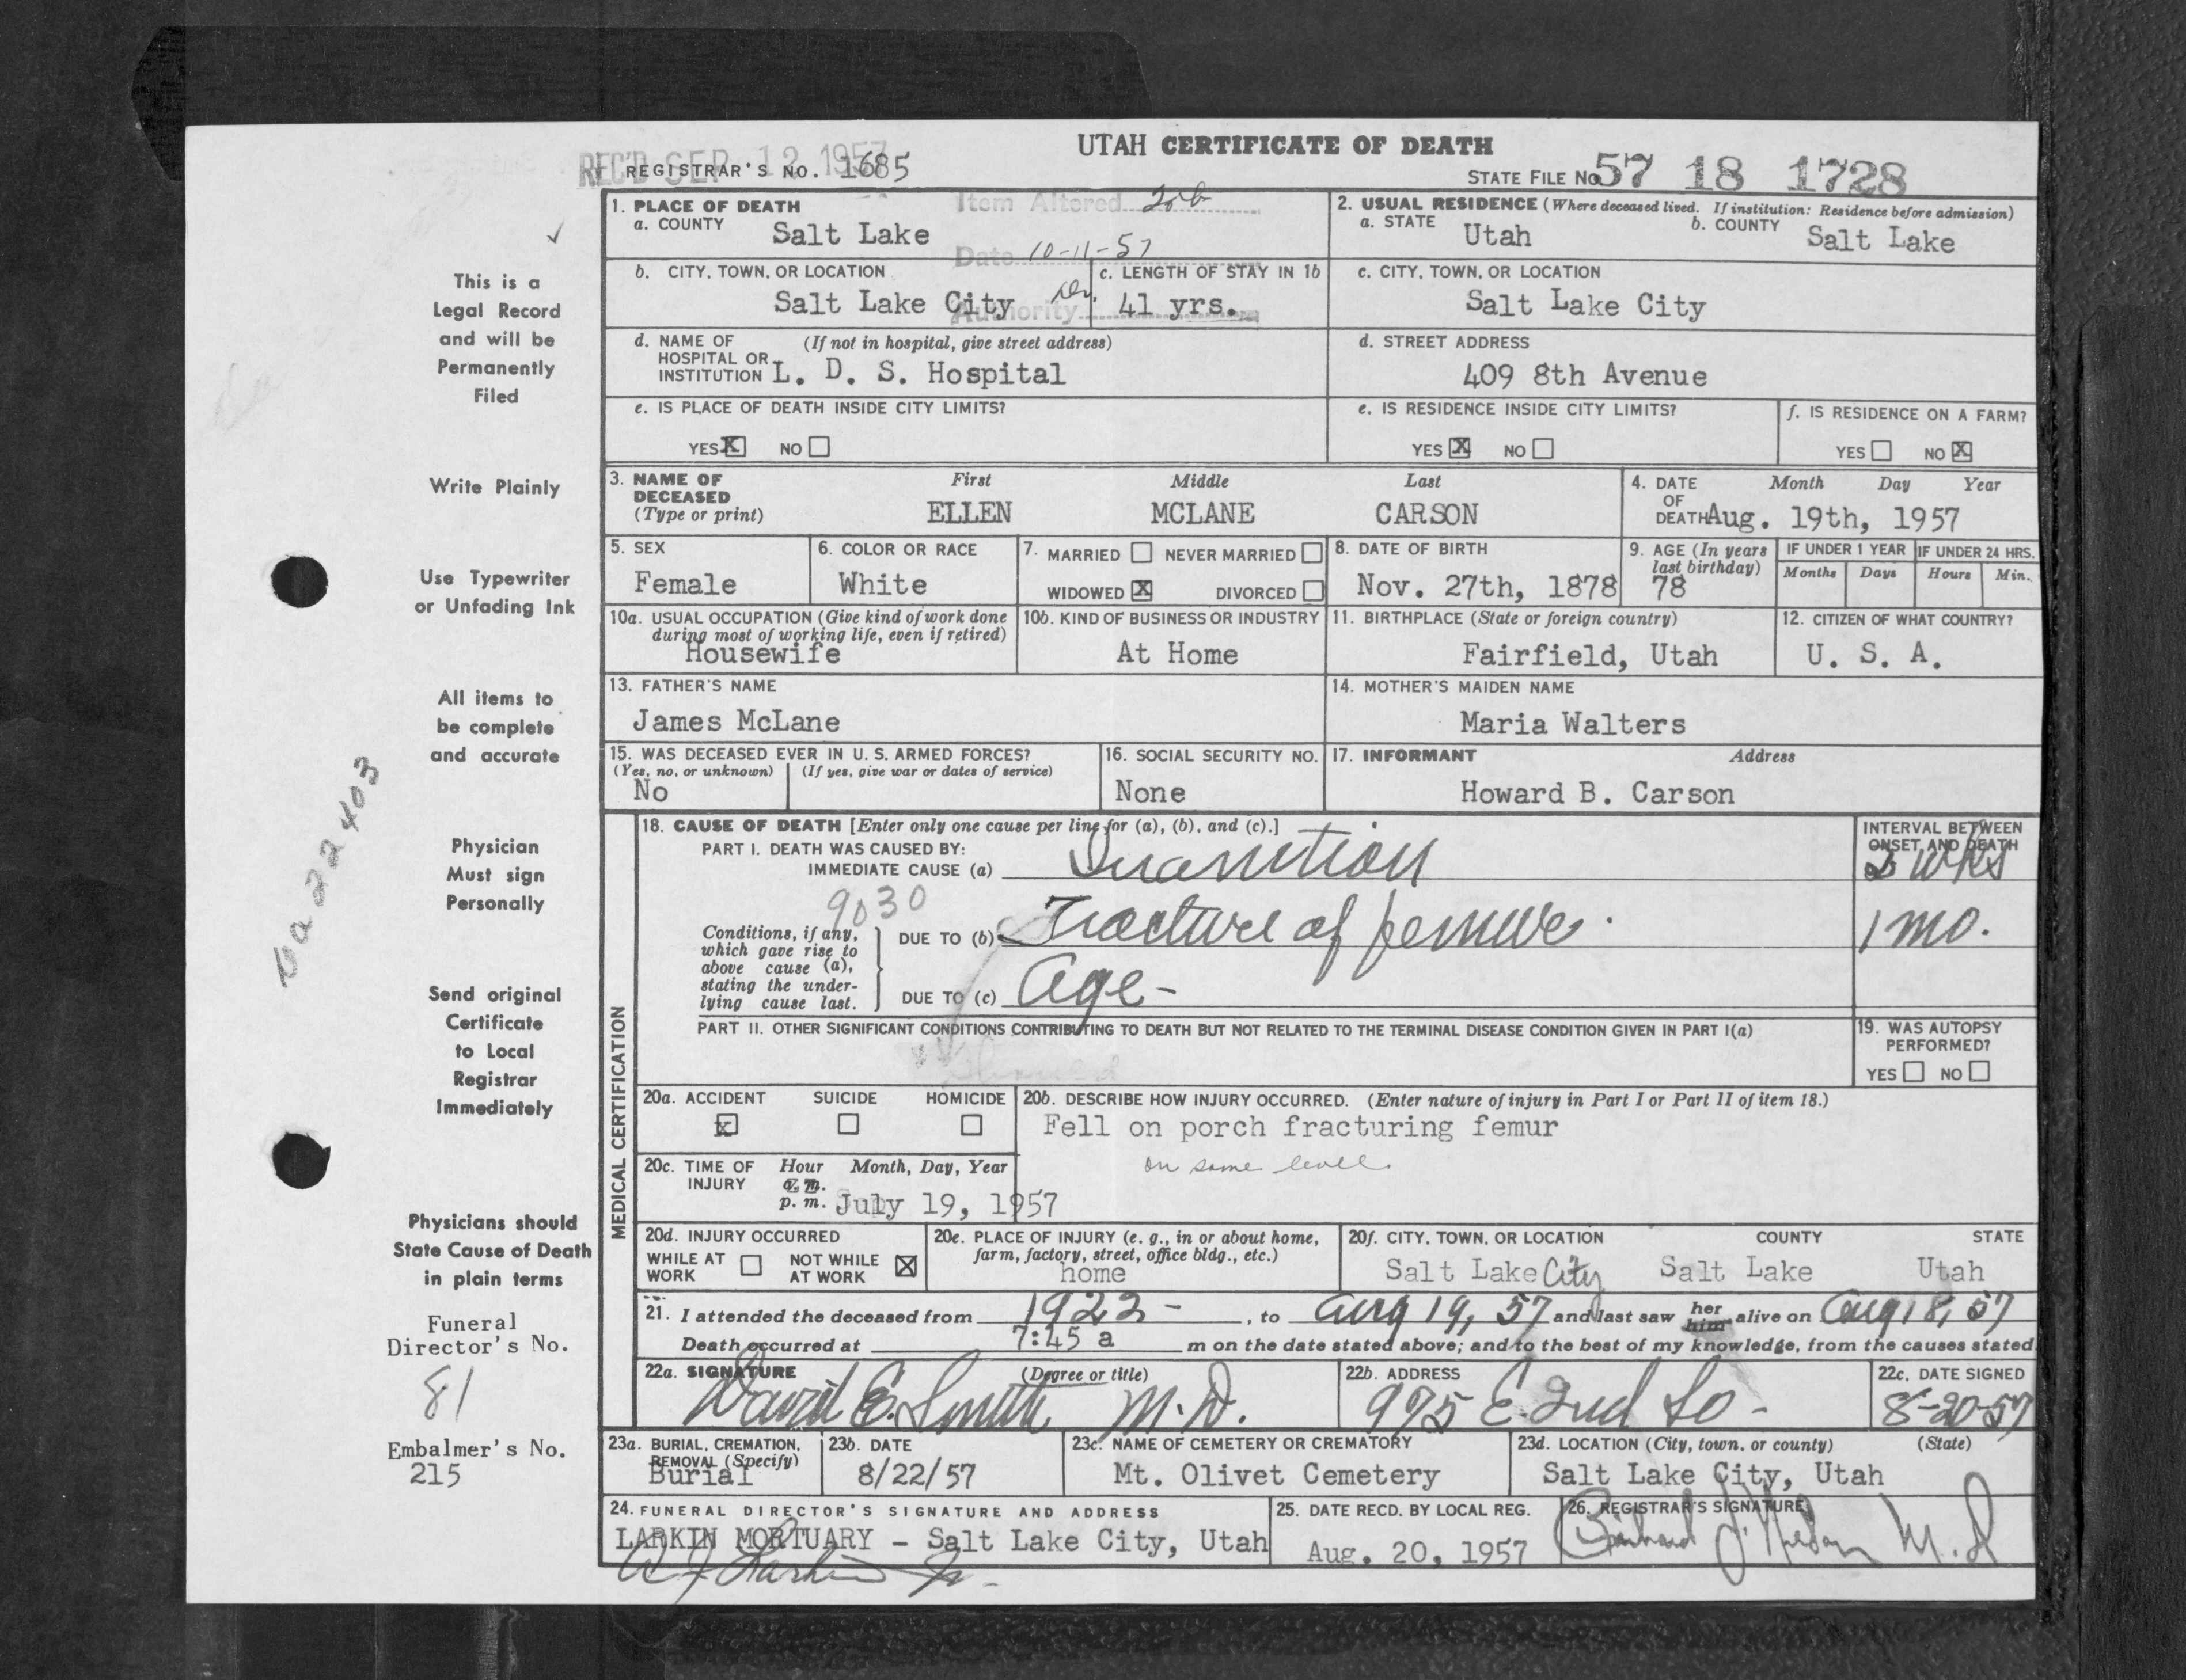 UTAH CERTIFICATE OF DEATH
REC'D SEP 12 1957
REGISTRAR'S NO. 1685
STATE FILE No 57 18 1728
Item Altered 20b
Date 10-11-57
Authority
1. PLACE OF DEATH
a. COUNTY Salt Lake
2. USUAL RESIDENCE (Where deceased lived. If institution: Residence before admission)
a. STATE Utah b. COUNTY Salt Lake
b. CITY, TOWN, OR LOCATION Salt Lake City
c. LENGTH OF STAY IN 1b 41 yrs.
c. CITY, TOWN, OR LOCATION Salt Lake City
d. NAME OF HOSPITAL OR INSTITUTION (If not in hospital, give street address) L. D. S. Hospital
d. STREET ADDRESS 409 8th Avenue
e. IS PLACE OF DEATH INSIDE CITY LIMITS?
YES X NO
e. IS RESIDENCE INSIDE CITY LIMITS?
YES X NO
f. IS RESIDENCE ON A FARM?
YES NO X
3. NAME OF DECEASED (Type or print)
First Middle Last
ELLEN MCLANE CARSON
4. DATE OF DEATH Month Day Year
Aug. 19th, 1957
5. SEX Female
6. COLOR OR RACE White
7. MARRIED NEVER MARRIED
WIDOWED X DIVORCED
8. DATE OF BIRTH Nov. 27th, 1878
9. AGE (In years last birthday) 78
IF UNDER 1 YEAR Months Days
IF UNDER 24 HRS. Hours Min.
10a. USUAL OCCUPATION (Give kind of work done during most of working life, even if retired)
Housewife
10b. KIND OF BUSINESS OR INDUSTRY At Home
11. BIRTHPLACE (State or foreign country) Fairfield, Utah
12. CITIZEN OF WHAT COUNTRY? U. S. A.
13. FATHER'S NAME James McLane
14. MOTHER'S MAIDEN NAME Maria Walters
15. WAS DECEASED EVER IN U. S. ARMED FORCES?
(Yes, no, or unknown) (If yes, give war or dates of service)
No
16. SOCIAL SECURITY NO. None
17. INFORMANT Address
Howard B. Carson
MEDICAL CERTIFICATION
18. CAUSE OF DEATH [Enter only one cause per line for (a), (b), and (c).]
INTERVAL BETWEEN ONSET AND DEATH
PART I. DEATH WAS CAUSED BY:
IMMEDIATE CAUSE (a) Inanition 2 wks
9030
Conditions, if any, which gave rise to above cause (a), stating the underlying cause last.
DUE TO (b) Fracture of femur. 1 mo.
DUE TO (c) Age -
PART II. OTHER SIGNIFICANT CONDITIONS CONTRIBUTING TO DEATH BUT NOT RELATED TO THE TERMINAL DISEASE CONDITION GIVEN IN PART I(a)
19. WAS AUTOPSY PERFORMED?
YES NO
20a. ACCIDENT SUICIDE HOMICIDE
X
20b. DESCRIBE HOW INJURY OCCURRED. (Enter nature of injury in Part I or Part II of item 18.)
Fell on porch fracturing femur
on same level
20c. TIME OF INJURY Hour Month, Day, Year
a. m.
p. m. July 19, 1957
20d. INJURY OCCURRED
WHILE AT WORK NOT WHILE AT WORK X
20e. PLACE OF INJURY (e. g., in or about home, farm, factory, street, office bldg., etc.)
home
20f. CITY, TOWN, OR LOCATION COUNTY STATE
Salt Lake City Salt Lake Utah
21. I attended the deceased from 1922 - , to Aug 19, 57 and last saw her him alive on Aug 18, 57
Death occurred at 7:45 a m on the date stated above; and to the best of my knowledge, from the causes stated
22a. SIGNATURE (Degree or title)
David E. Smith M.D.
22b. ADDRESS 995 E 2nd So -
22c. DATE SIGNED 8-20-57
23a. BURIAL, CREMATION, REMOVAL (Specify) Burial
23b. DATE 8/22/57
23c. NAME OF CEMETERY OR CREMATORY Mt. Olivet Cemetery
23d. LOCATION (City, town, or county) (State)
Salt Lake City, Utah
24. FUNERAL DIRECTOR'S SIGNATURE AND ADDRESS
LARKIN MORTUARY - Salt Lake City, Utah
25. DATE RECD. BY LOCAL REG. Aug. 20, 1957
26. REGISTRAR'S SIGNATURE
This is a
Legal Record
and will be
Permanently
Filed
Write Plainly
Use Typewriter
or Unfading Ink
All items to
be complete
and accurate
Physician
Must sign
Personally
Send original
Certificate
to Local
Registrar
Immediately
Physicians should
State Cause of Death
in plain terms
Funeral
Director's No.
81
Embalmer's No.
215